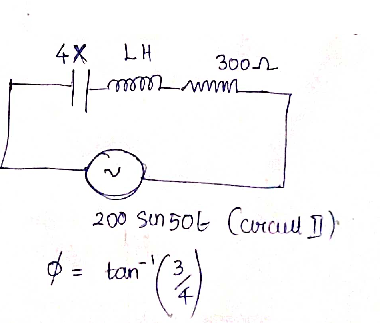 4X LH 300Ω
~
200 Sin 50t (circuit II)
φ = tan⁻¹(3/4)